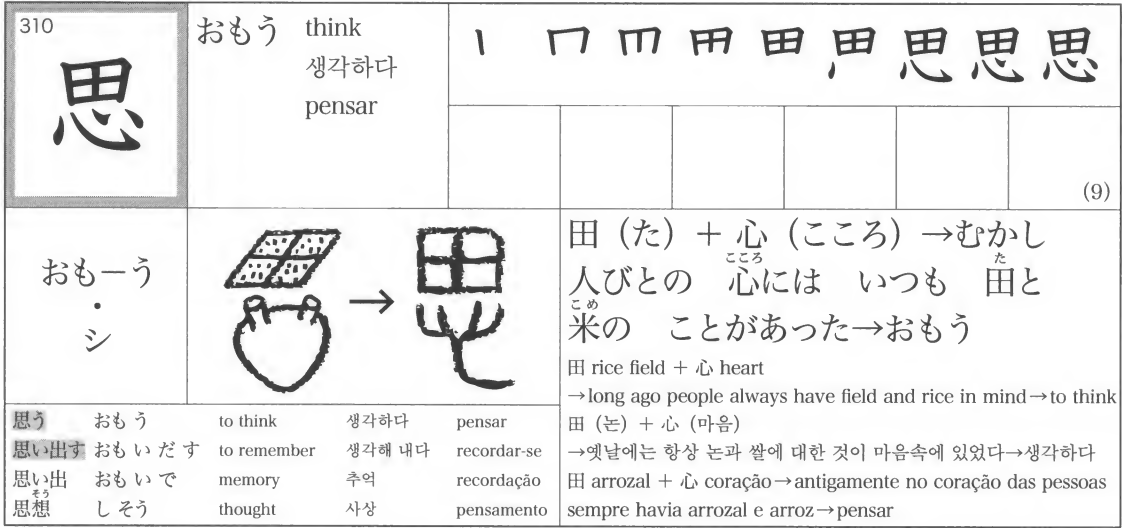 310
思
おもう think
생각하다
pensar
丨 冂 
(9)
おも－う
・
シ
田（た）＋心（こころ）→むかし
人びとの 心には いつも 田と
こころ た
米の ことがあった→おもう
こめ
田 rice field + 心 heart
→long ago people always have field and rice in mind→to think
田（논）+ 心（마음）
→옛날에는 항상 논과 쌀에 대한 것이 마음속에 있었다→생각하다
田 arrozal + 心 coração→antigamente no coração das pessoas
sempre havia arrozal e arroz→pensar
思う おも う to think 생각하다 pensar
思い出す おも い だ す to remember 생각해 내다 recordar-se
思い出 おも い で memory 추억 recordação
そう
思想 し そう thought 사상 pensamento